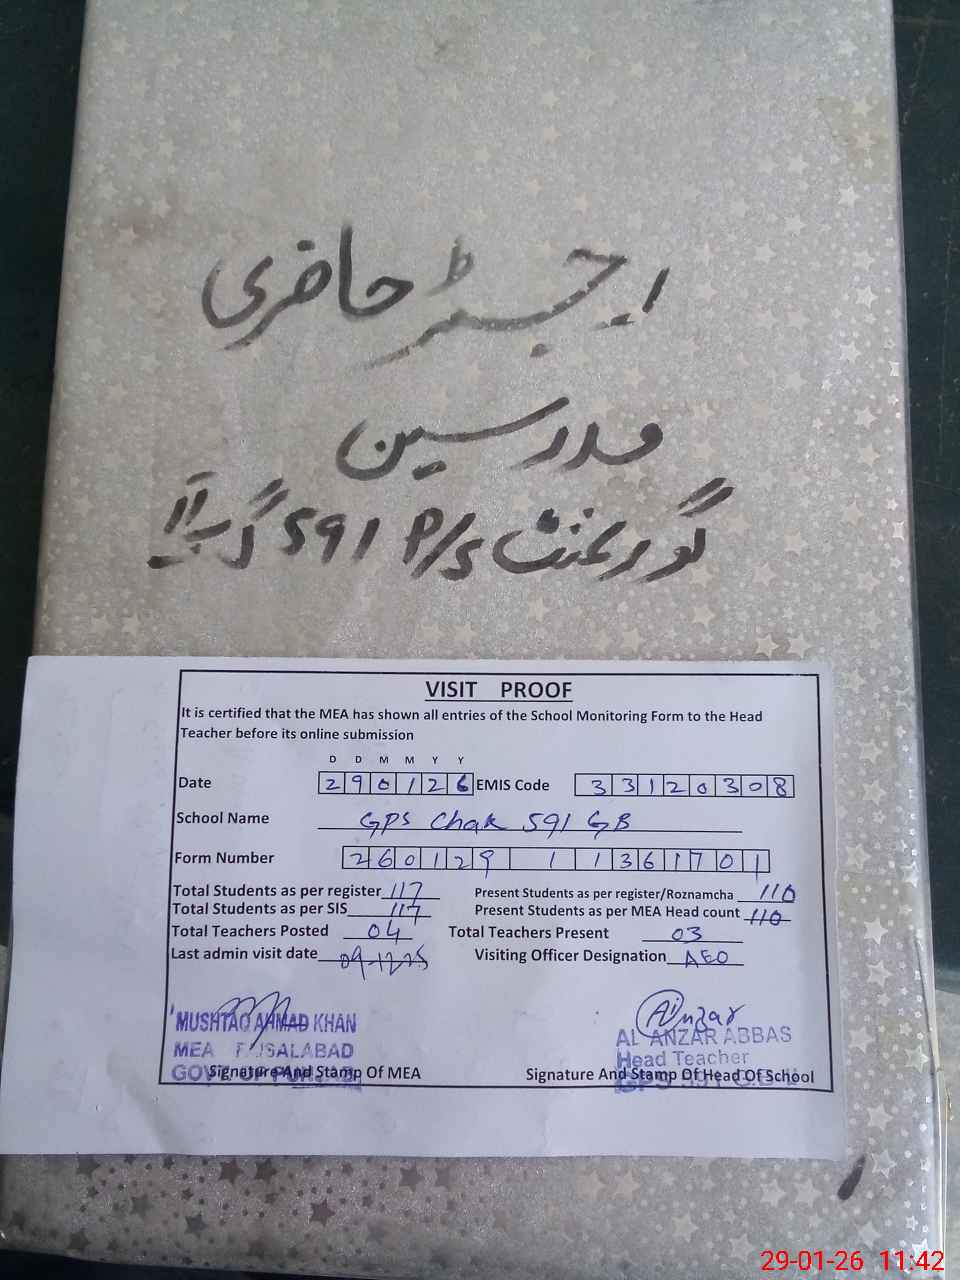 رجسٹر حاضری
مدرسین
گورنمنٹ P/S 591 گ ب
VISIT PROOF
It is certified that the MEA has shown all entries of the School Monitoring Form to the Head
Teacher before its online submission
D D M M Y Y
Date 290126 EMIS Code 33120308
School Name GPS Chak 591 GB
Form Number 260129 1 1361701
Total Students as per register 117 Present Students as per register/Roznamcha 110
Total Students as per SIS 117 Present Students as per MEA Head count 110
Total Teachers Posted 04 Total Teachers Present 03
Last admin visit date 09-12-25 Visiting Officer Designation AEO
MUSHTAQ AHMAD KHAN
MEA FAISALABAD
GOVT. OF PUNJAB
Signature And Stamp Of MEA
Al Anzar
AL ANZAR ABBAS
Head Teacher
GPS 591 G.B
Signature And Stamp Of Head Of School
29-01-26 11:42